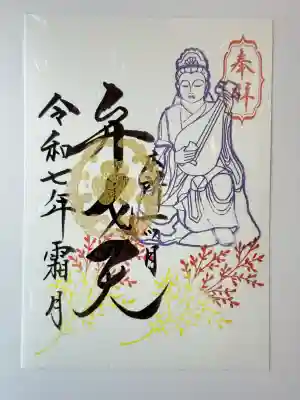 奉拝
弁才天
令和七年霜月